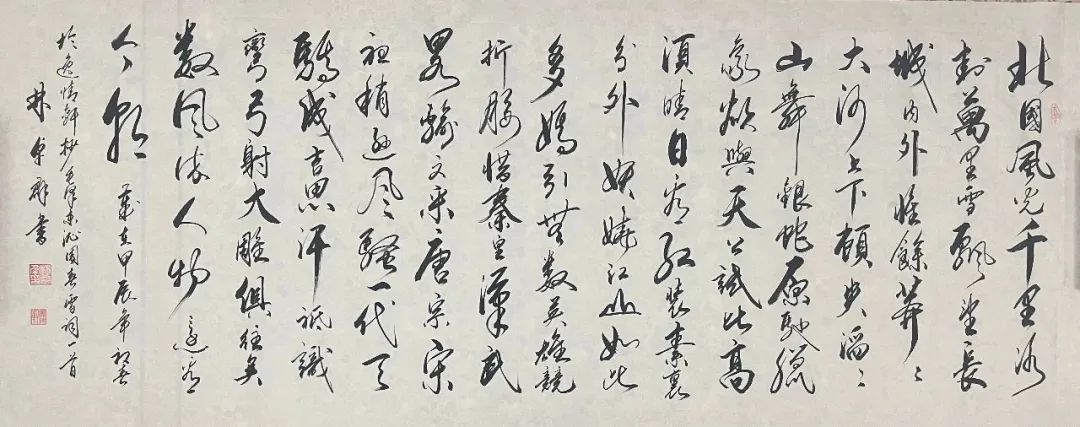 北國風光千里冰
封萬里雪飄望長
城內外惟餘莽〻
大河上下頓失滔〻
山舞銀蛇原馳蠟
象欲與天公試比高
須晴日看紅裝素裹
分外妖嬈江山如此
多嬌引無數英雄競
折腰惜秦皇漢武
略輸文采唐宗宋
祖稍遜風騷一代天
驕成吉思汗祗識
彎弓射大雕俱往矣
數風流人物還看
今朝 歲在甲辰年初春
於逸情軒抄毛澤東沁園春雪詞一首
林 群書